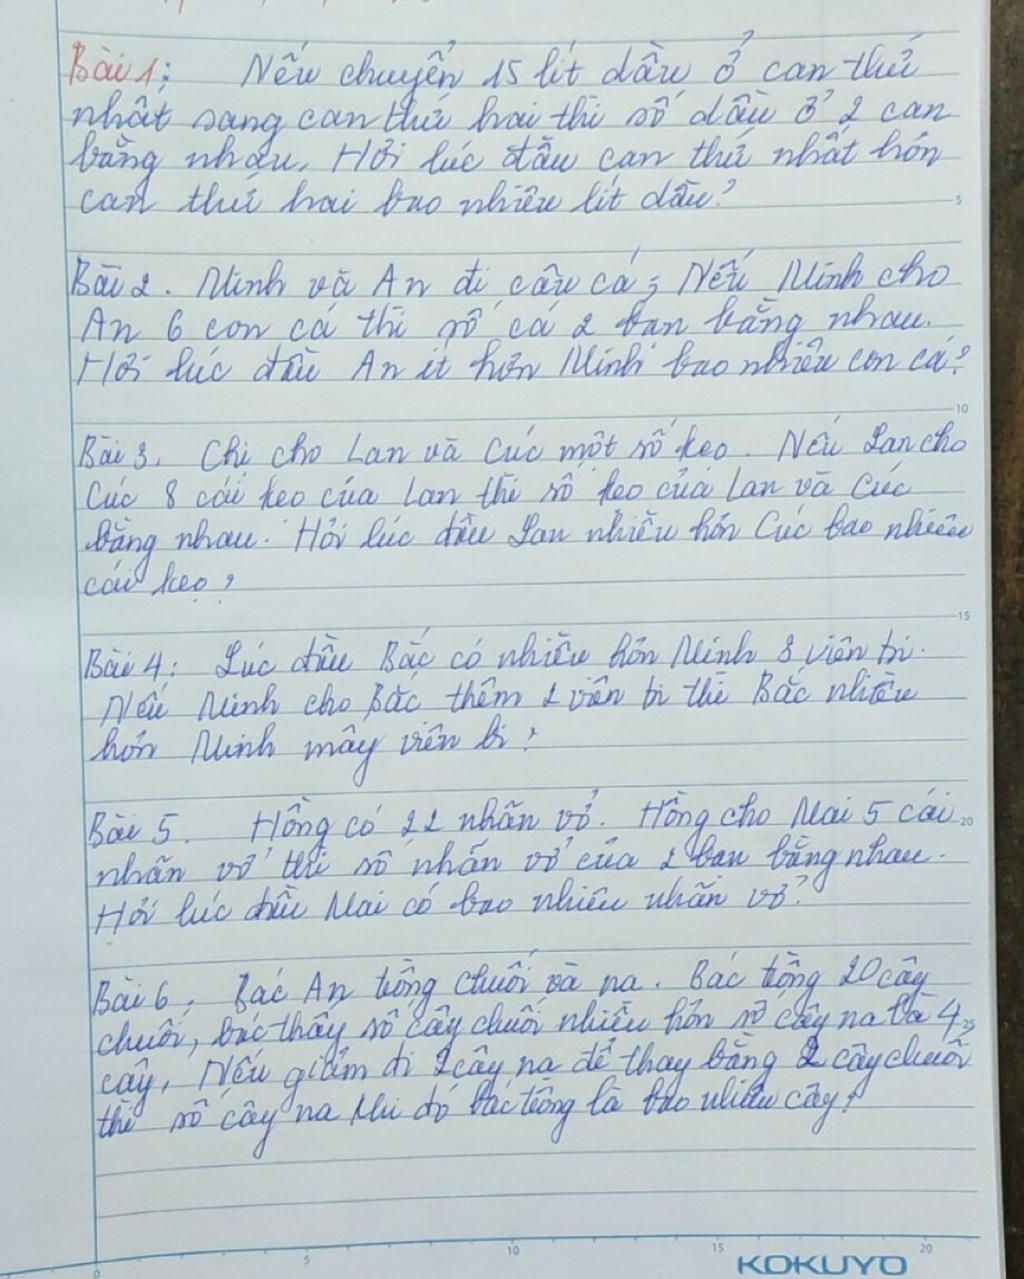 Bài 1: Nếu chuyển 15 lít dầu ở can thứ
nhất sang can thứ hai thì số dầu ở 2 can
bằng nhau. Hỏi lúc đầu can thứ nhất hơn
can thứ hai bao nhiêu lít dầu?
5
Bài 2. Minh và An đi câu cá; Nếu Minh cho
An 6 con cá thì số cá 2 bạn bằng nhau.
Hỏi lúc đầu An ít hơn Minh bao nhiêu con cá?
10
Bài 3. Chị cho Lan và Cúc một số kẹo. Nếu Lan cho
Cúc 8 cái kẹo của Lan thì số kẹo của Lan và Cúc
bằng nhau. Hỏi lúc đầu Lan nhiều hơn Cúc bao nhiêu
cái kẹo?
15
Bài 4: Lúc đầu Bắc có nhiều hơn Minh 8 viên bi.
Nếu Minh cho Bắc thêm 2 viên bi thì Bắc nhiều
hơn Minh mấy viên bi?
Bài 5. Hồng có 22 nhãn vở. Hồng cho Mai 5 cái 20
nhãn vở thì số nhãn vở của 2 bạn bằng nhau.
Hỏi lúc đầu Mai có bao nhiêu nhãn vở?
Bài 6: Bác An trồng chuối và na. Bác trồng 20 cây
chuối, bác thấy số cây chuối nhiều hơn số cây na là 4 25
cây, Nếu giảm đi 2 cây na để thay bằng 2 cây chuối
thì số cây na khi đó bác trồng là bao nhiêu cây?
0 5 10 15 20
KOKUYO